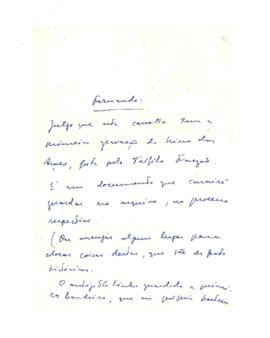 Fernando:
Julgo que esta cassette tem a
primeira gravação do hino dos
Açores, feita pelo Teófilo Frazão.
É um documento que convirá
guardar no arquivo, no processo
respectivo.
(Ou arranjar algum lugar para
estas coisas destas, que são de fundo
históricas.
O antigo SG tinha guardado a primei-
ra bandeira, que eu próprio